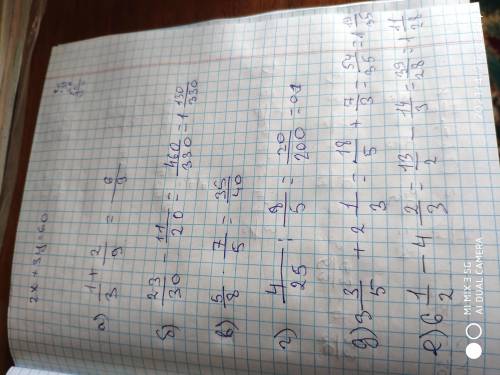 а) 1/3 + 2/9 = 
б) 23/30 - 11/20 = 460/330 = 1 130/330
в) 5/8 · 7/5 = 35/40
г) 4/25 : 8/5 = 20/200 = 0,1
д) 3 3/5 + 2 1/3 = 18/5 + 7/3 = 54/35 = 1 19/35
е) 6 1/2 - 4 2/3 = 13/2 - 14/3 = 39/28 = 1 11/28
MI MIX 3 5G
AI DUAL CAMERA